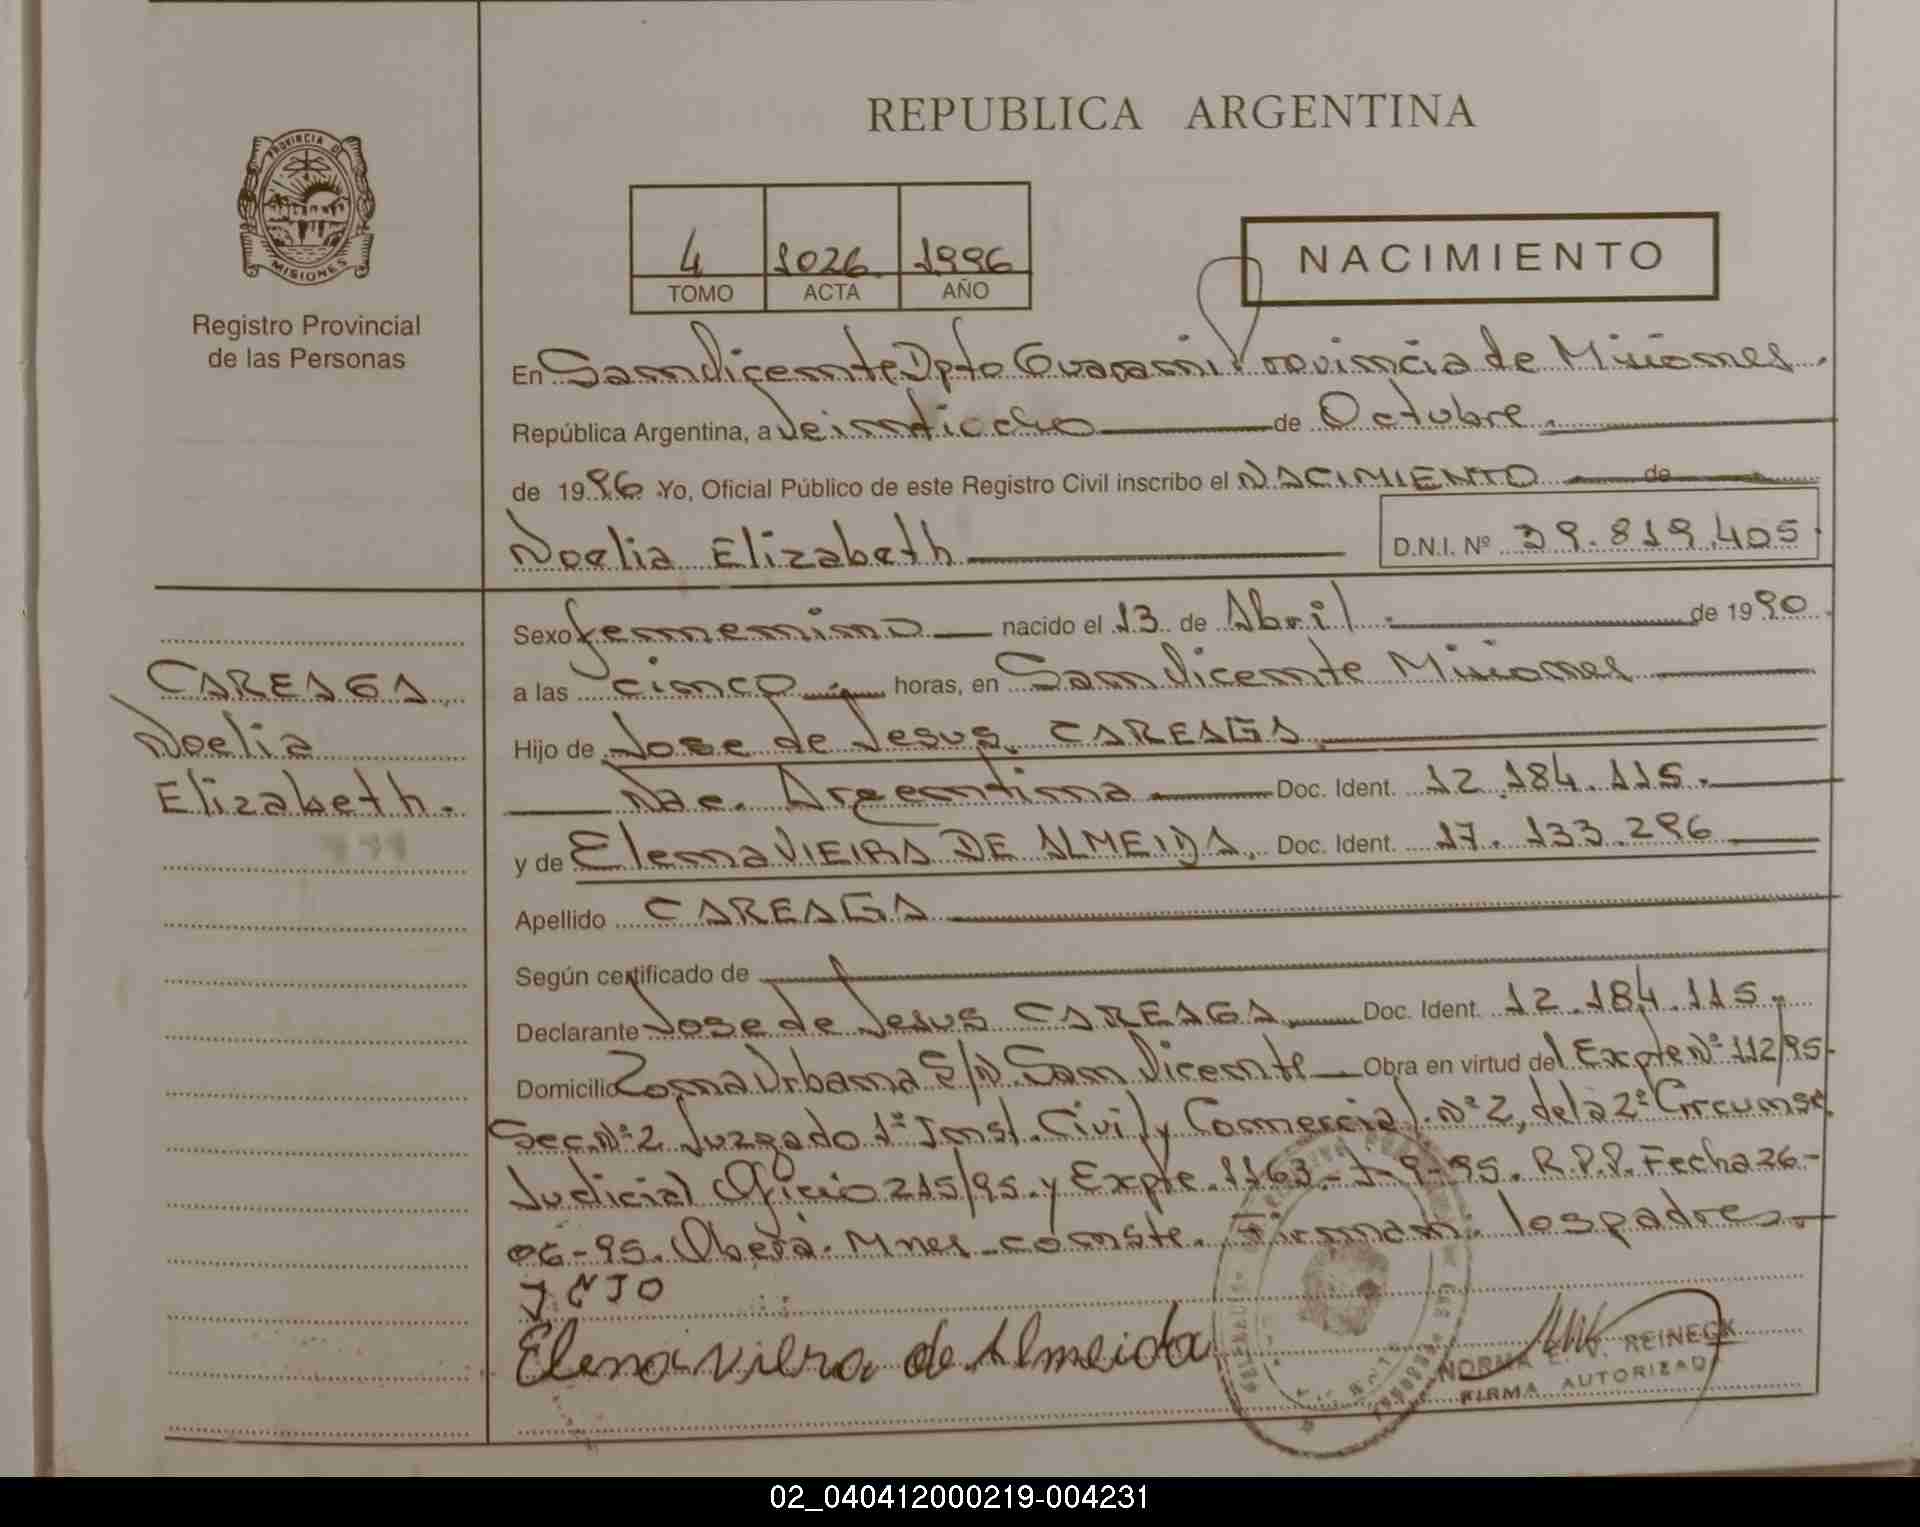 REPUBLICA ARGENTINA
PROVINCIA DE
MISIONES
Registro Provincial
de las Personas
4 1026 1996
TOMO ACTA AÑO
NACIMIENTO
En San Vicente Dpto Guarani Provincia de Misiones.
República Argentina, a Veintiocho de Octubre.
de 1996 Yo, Oficial Público de este Registro Civil inscribo el NACIMIENTO de
Noelia Elizabeth
D.N.I. Nº 39.819.405
CAREAGA,
Noelia
Elizabeth.
Sexo femenino nacido el 13 de Abril de 1990
a las cinco horas, en San Vicente Misiones
Hijo de Jose de Jesus CAREAGA
Nac. Argentina Doc. Ident. 12.184.115.
y de Elena VIEIRA DE ALMEIDA, Doc. Ident. 17.133.296
Apellido CAREAGA
Según certificado de
Declarante Jose de Jesus CAREAGA Doc. Ident. 12.184.115.
Domicilio Zona Urbana S/N San Vicente Obra en virtud del Expte Nº 112/95-
Sec. Nº 2 Juzgado 1ª Inst. Civil y Comercial Nº 2, de la 2ª Circunsc.
Judicial Oficio 215/95 y Expte. 1163-J-9-95. R.P.P. Fecha 26-
06-95. Oberá. Mnes conste. Firman los padres
Elena viera de Almeida
NORMA E. V. REINECK
FIRMA AUTORIZADA
02_040412000219-004231